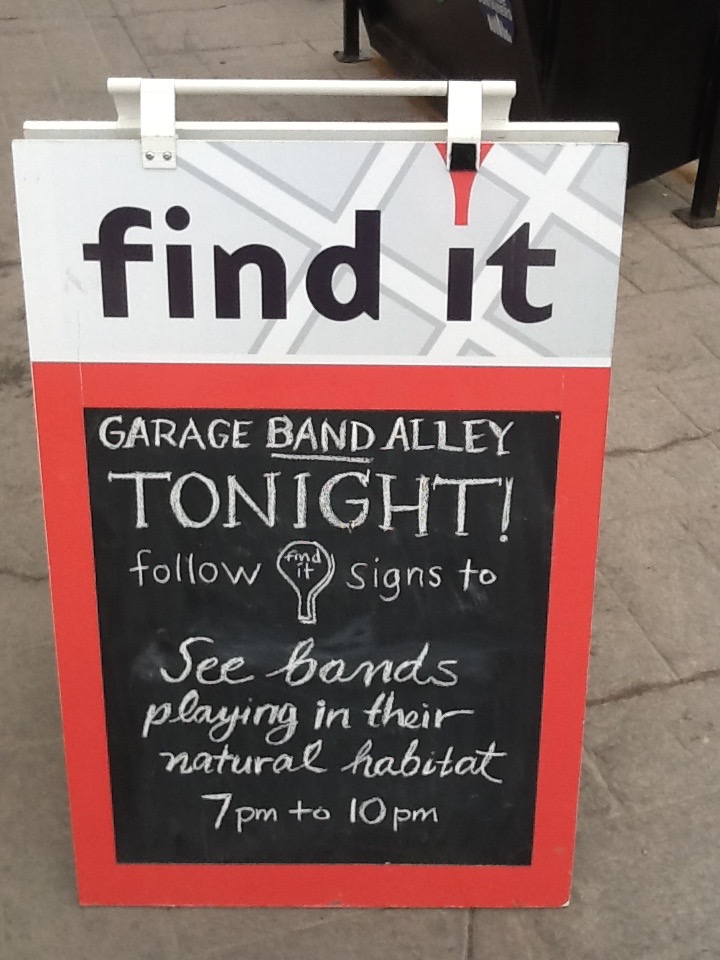 find it
GARAGE BAND ALLEY
TONIGHT!
follow find it signs to
See bands
playing in their
natural habitat
7pm to 10pm